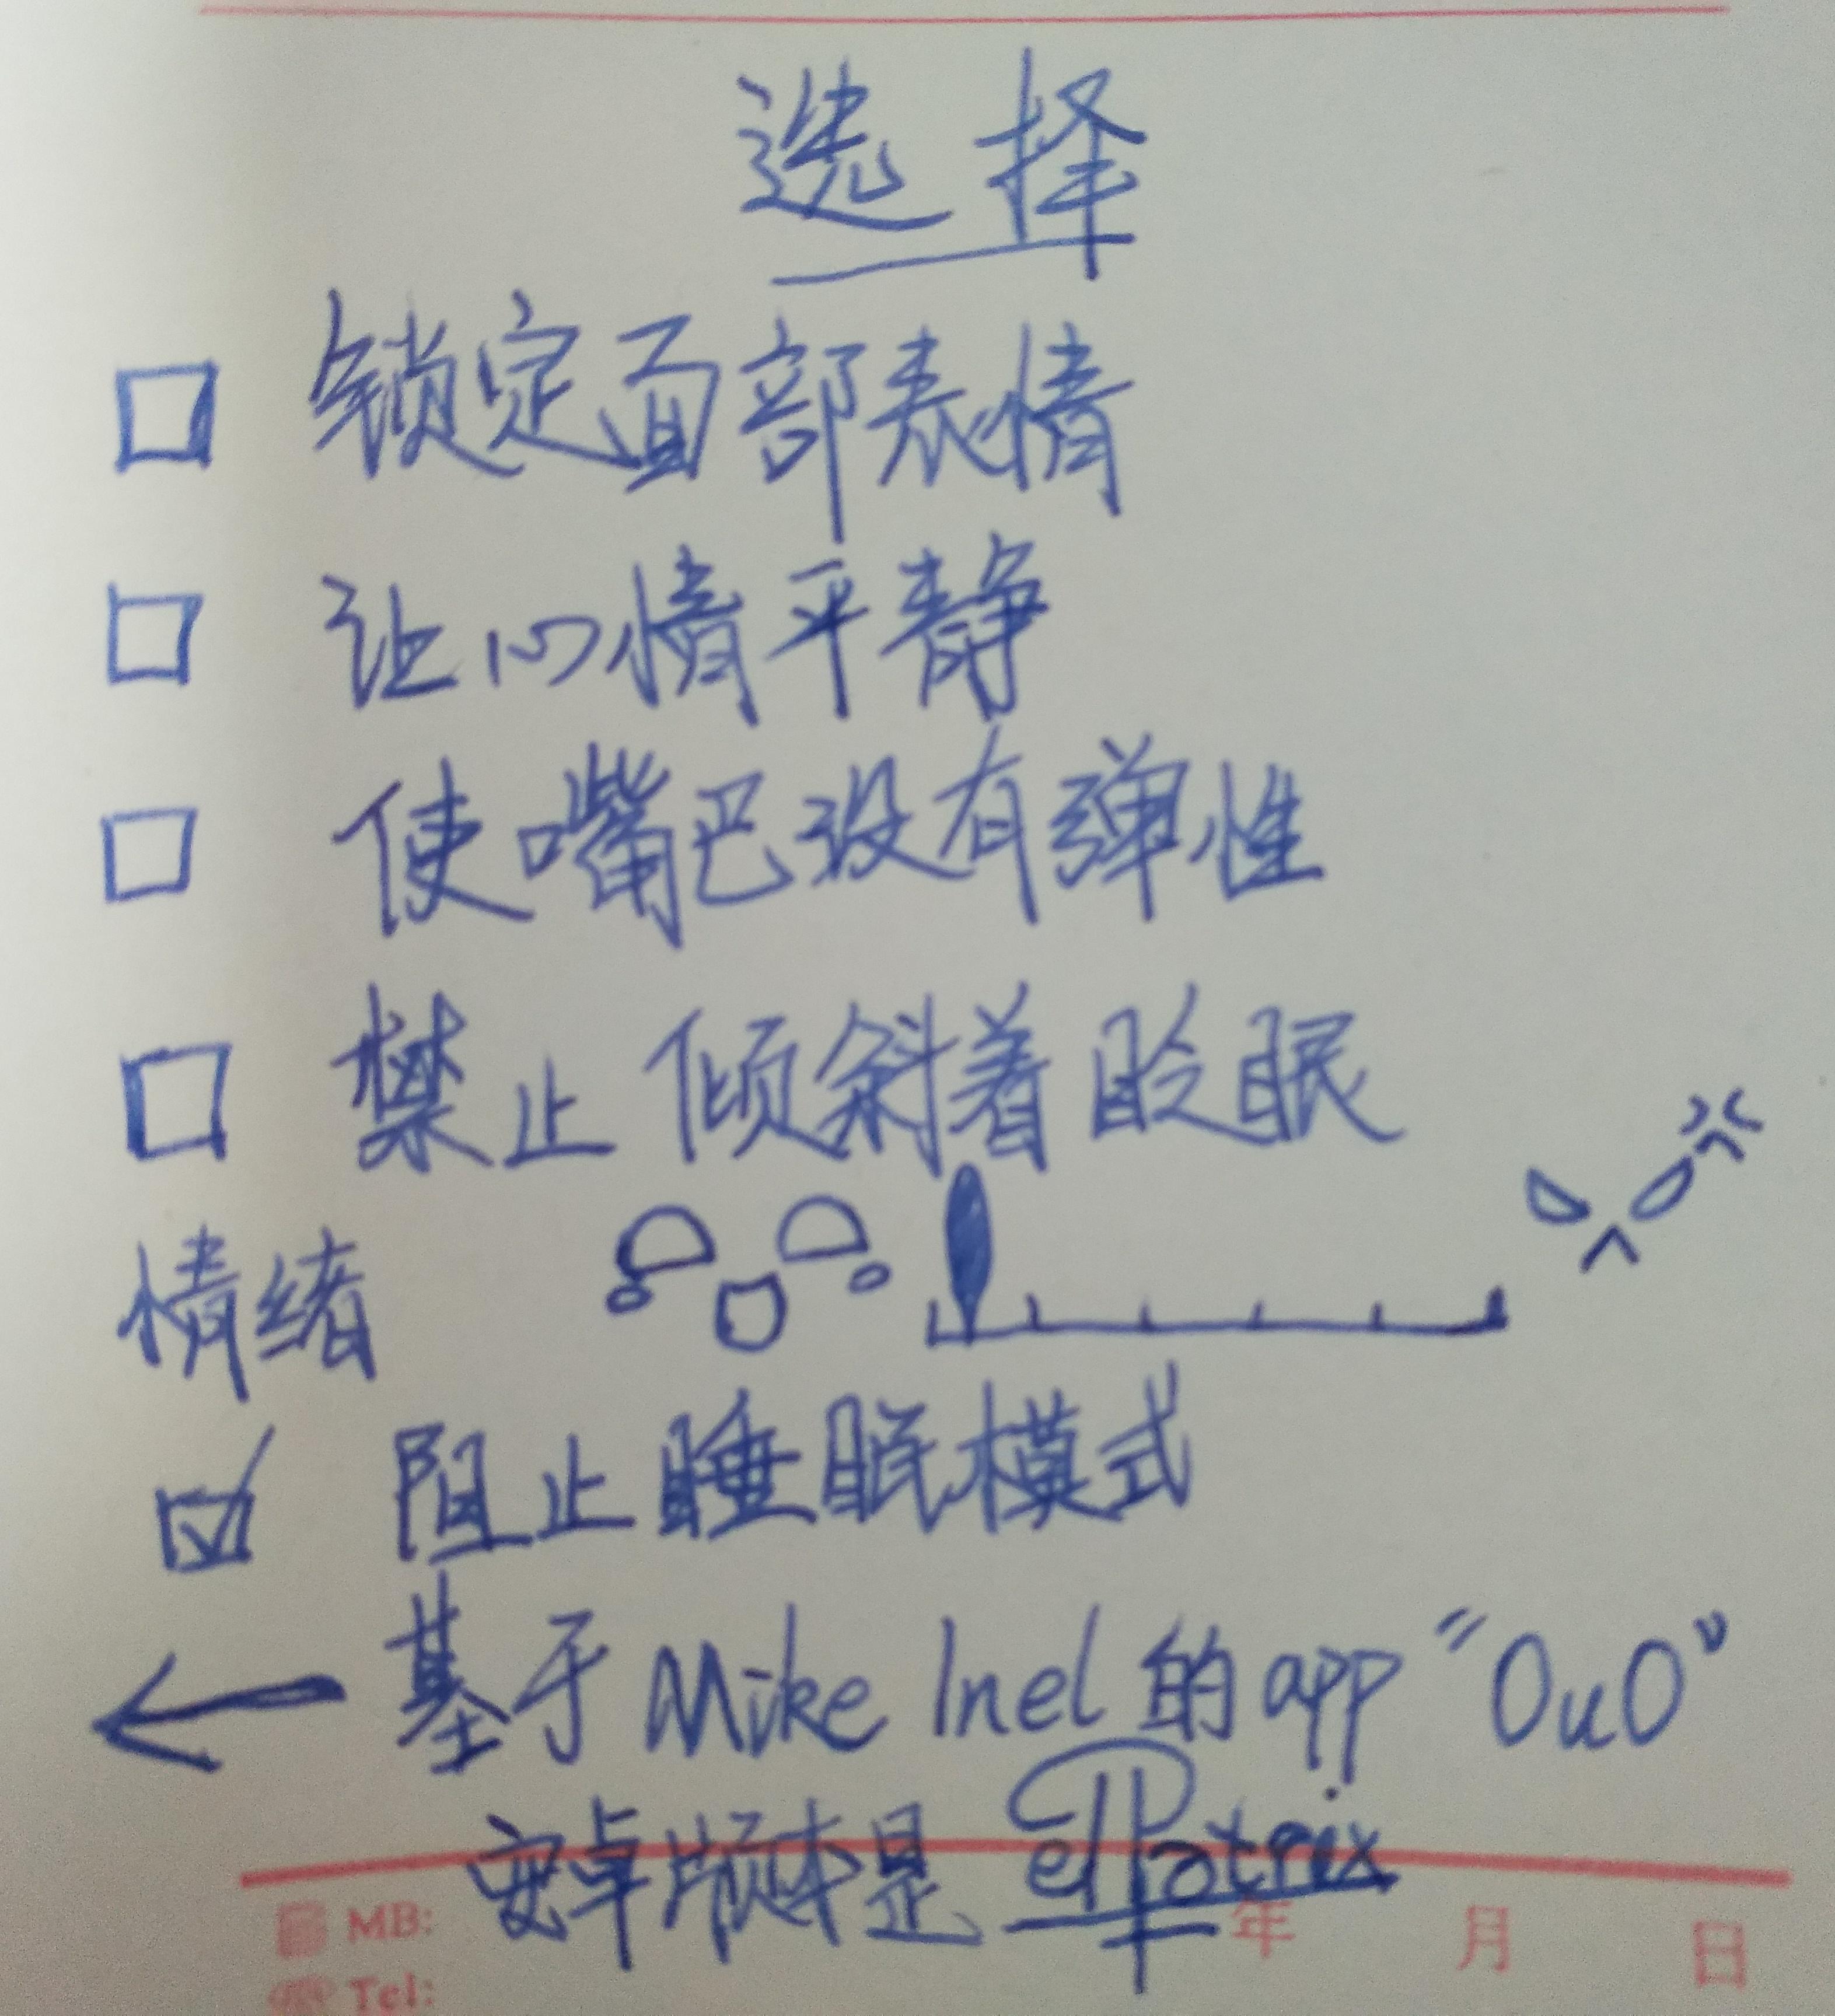 选择
锁定面部表情
让心情平静
使嘴巴没有弹性
禁止倾斜着眨眼
情绪
阻止睡眠模式
基于Mike Inel的app“OuO”
安卓版本是ellPatrix
MB: 年 月 日
Tel: